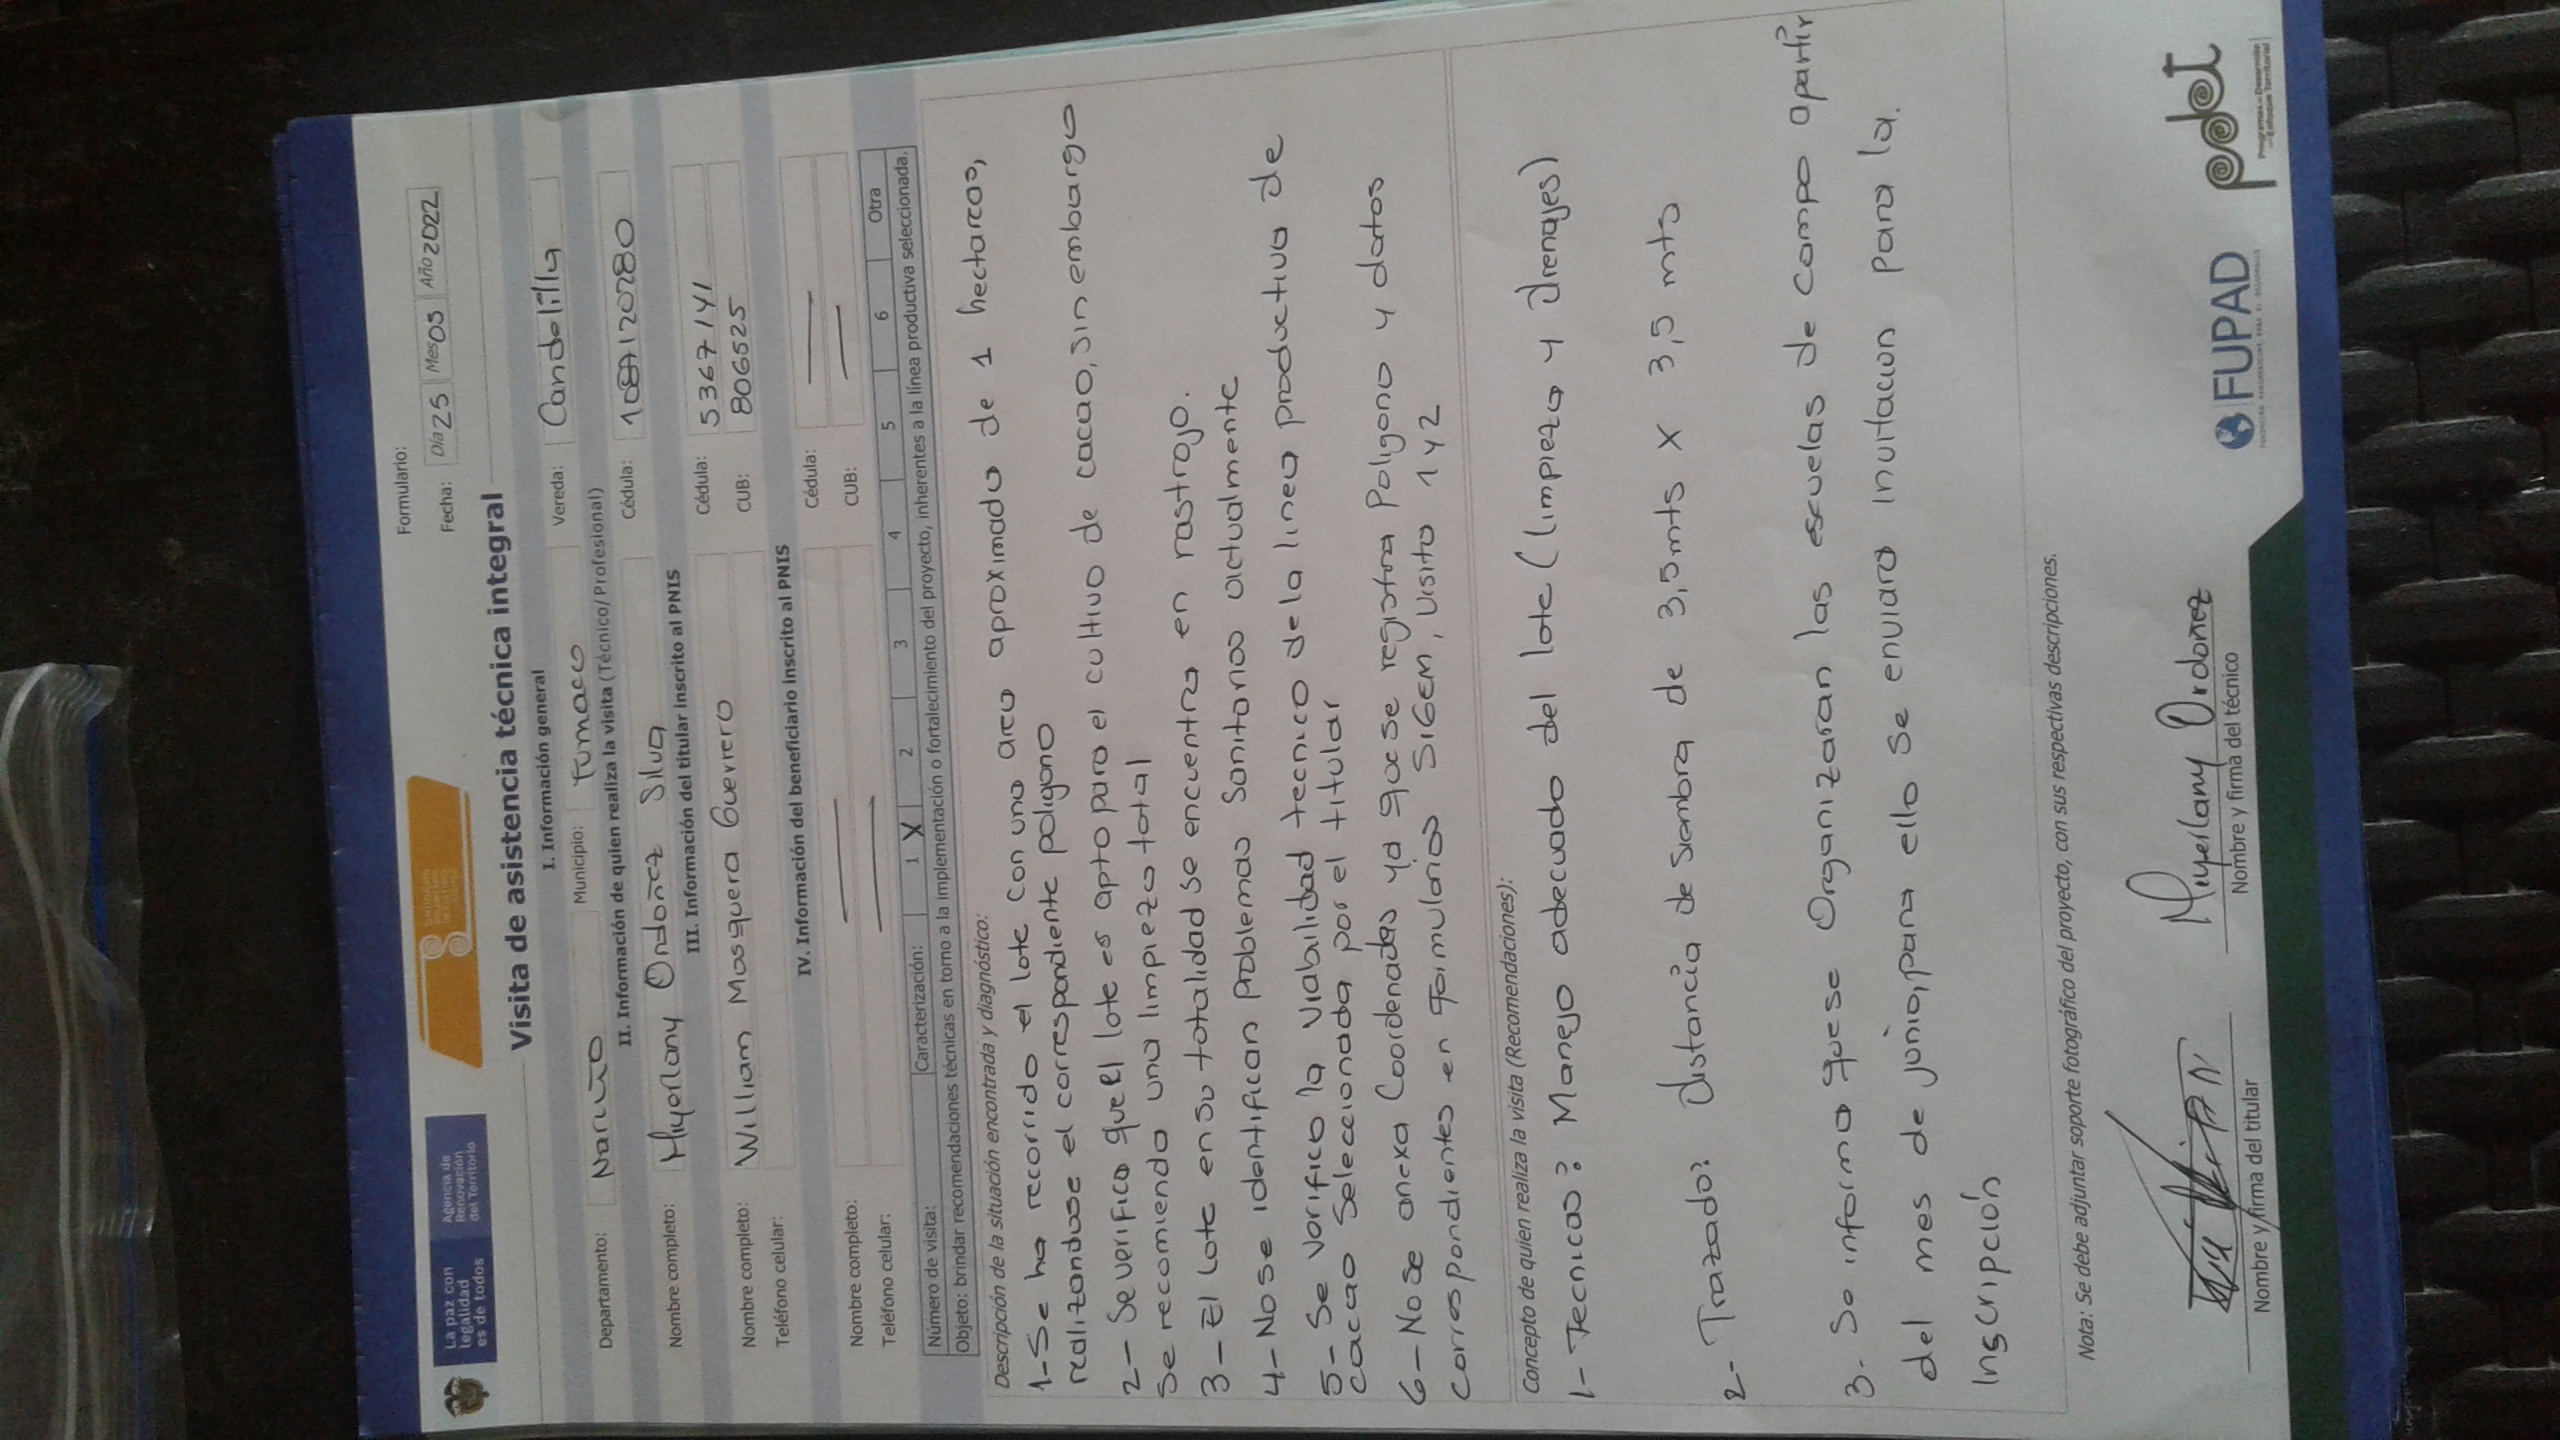 La paz con
legalidad
es de todos
Agencia de
Renovación
del Territorio
Formulario:
Fecha: Día 25 Mes 05 Año 2022
Visita de asistencia técnica integral
I. Información general
Departamento: Nariño Municipio: Tumaco Vereda: Candelilla
II. Información de quien realiza la visita (Técnico/Profesional)
Nombre completo: Miyerlany Ordoñez Silva Cédula: 1087120280
III. Información del titular inscrito al PNIS
Nombre completo: William Mosquera Guerrero Cédula: 5367141
Teléfono celular: CUB: 806525
IV. Información del beneficiario inscrito al PNIS
Nombre completo: — Cédula: —
Teléfono celular: — CUB: —
Número de visita: Caracterización: 1 X 2 3 4 5 6 Otra
Objeto: brindar recomendaciones técnicas en torno a la implementación o fortalecimiento del proyecto, inherentes a la línea productiva seleccionada.
Descripción de la situación encontrada y diagnóstico:
1- Se ha recorrido el lote con una area aproximada de 1 hectareas,
realizandose el correspondiente poligono
2- Se verifico que el lote es apto para el cultivo de cacao, sin embargo
se recomienda una limpieza total
3- El Lote en su totalidad se encuentra en rastrojo.
4- No se identifican problemas Sanitarios actualmente
5- Se Verifico la viabilidad tecnica de la linea productiva de
cacao Seleccionada por el titular
6- No se anexa Coordenadas ya que se registra Poligono y datos
correspondientes en formularios SIGEM, visita 1 y 2
Concepto de quien realiza la visita (Recomendaciones):
1- Tecnicas: Manejo adecuado del lote (limpieza y drenajes)
2- Trazado: distancia de Siembra de 3,5 mts X 3,5 mts
3- Se informa que se Organizaran las escuelas de campo apartir
del mes de junio, para ello se enviara invitacion para la.
Inscripción
Nota: Se debe adjuntar soporte fotográfico del proyecto, con sus respectivas descripciones.
Miyerlany Ordoñez
Nombre y firma del titular Nombre y firma del técnico
FUPAD
pdet
Programas de Desarrollo
con Enfoque Territorial